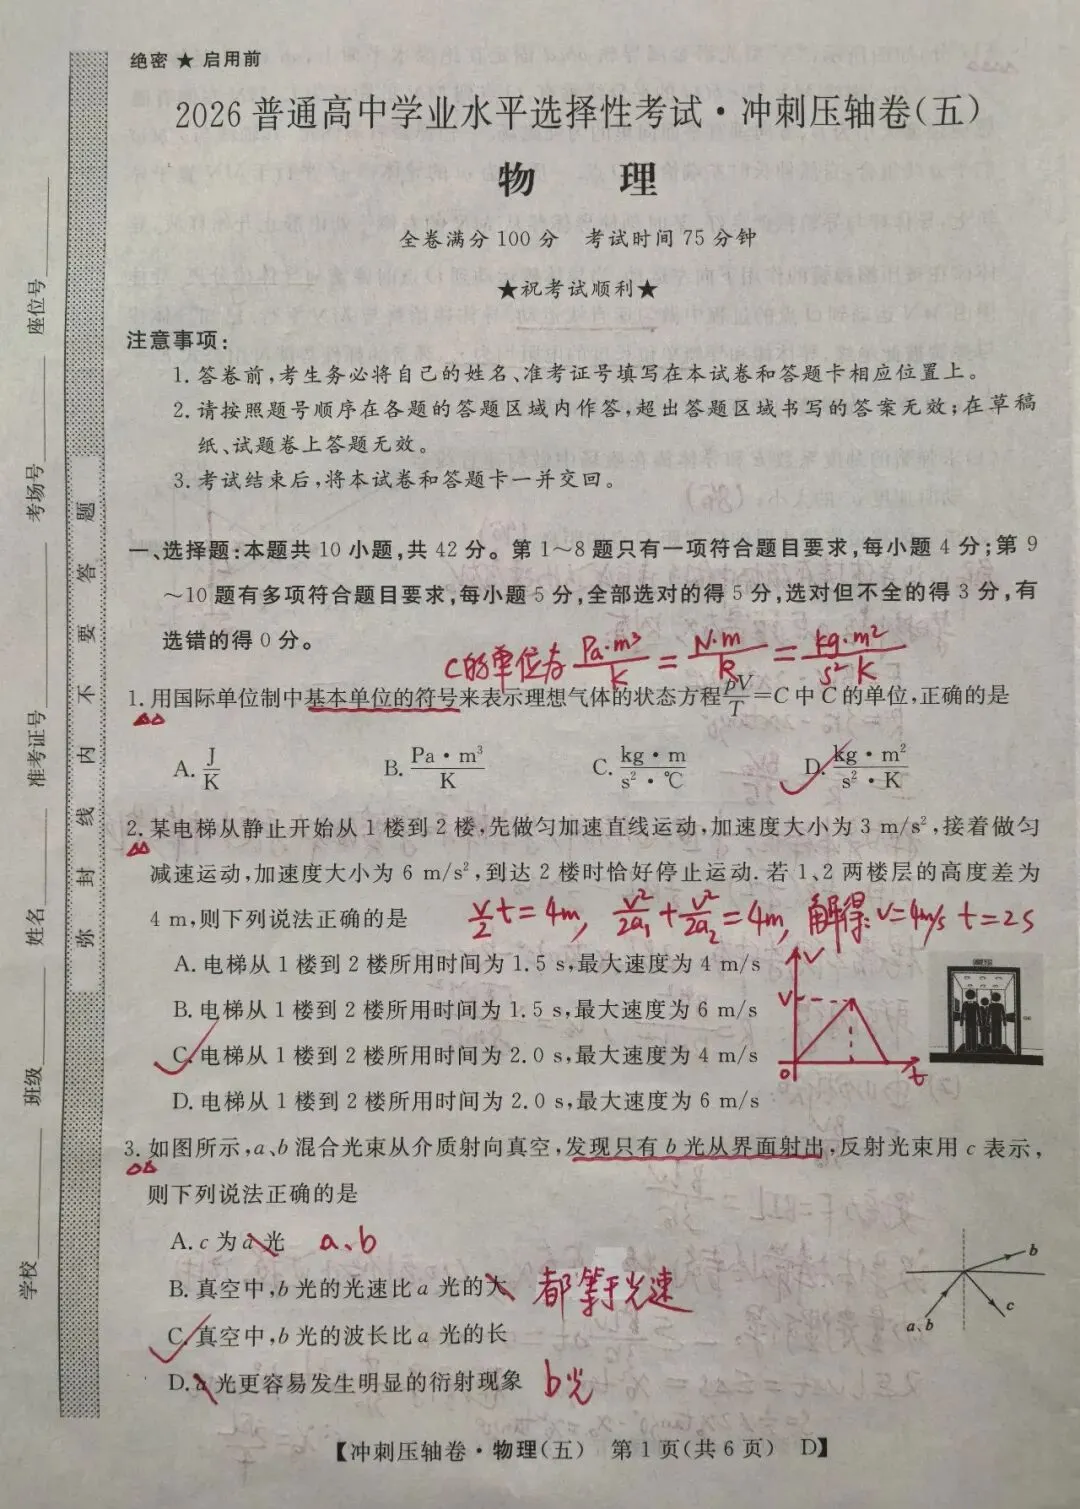 绝密 ★ 启用前
2026 普通高中学业水平选择性考试·冲刺压轴卷(五)
物 理
全卷满分 100 分 考试时间 75 分钟
★祝考试顺利★
注意事项:
1. 答卷前,考生务必将自己的姓名、准考证号填写在本试卷和答题卡相应位置上。
2. 请按照题号顺序在各题的答题区域内作答,超出答题区域书写的答案无效;在草稿
纸、试题卷上答题无效。
3. 考试结束后,将本试卷和答题卡一并交回。
一、选择题:本题共 10 小题,共 42 分。第 1~8 题只有一项符合题目要求,每小题 4 分;第 9
~10 题有多项符合题目要求,每小题 5 分,全部选对的得 5 分,选对但不全的得 3 分,有
选错的得 0 分。
C的单位为 Pa·m³/K = N·m/K = kg·m²/s²K
1. 用国际单位制中基本单位的符号来表示理想气体的状态方程 pV/T = C 中 C 的单位,正确的是
A. J/K B. Pa·m³/K C. kg·m/s²·℃ D. kg·m²/s²·K
2. 某电梯从静止开始从 1 楼到 2 楼,先做匀加速直线运动,加速度大小为 3 m/s²,接着做匀
减速运动,加速度大小为 6 m/s²,到达 2 楼时恰好停止运动. 若 1、2 两楼层的高度差为
4 m,则下列说法正确的是
v/2 t = 4m, v²/2a₁ + v²/2a₂ = 4m, 解得: v=4m/s t=2s
A. 电梯从 1 楼到 2 楼所用时间为 1.5 s,最大速度为 4 m/s
B. 电梯从 1 楼到 2 楼所用时间为 1.5 s,最大速度为 6 m/s
C. 电梯从 1 楼到 2 楼所用时间为 2.0 s,最大速度为 4 m/s
D. 电梯从 1 楼到 2 楼所用时间为 2.0 s,最大速度为 6 m/s
v
v
0
t
3. 如图所示,a、b 混合光束从介质射向真空,发现只有 b 光从界面射出,反射光束用 c 表示,
则下列说法正确的是
A. c 为 a 光 a、b
B. 真空中,b 光的光速比 a 光的大 都等于光速
C. 真空中,b 光的波长比 a 光的长
D. a 光更容易发生明显的衍射现象 b光
b
c
a、b
【冲刺压轴卷·物理(五) 第 1 页(共 6 页) D】
学校
班级
姓名
准考证号
考场号
座位号
弥 封 线 内 不 要 答 题